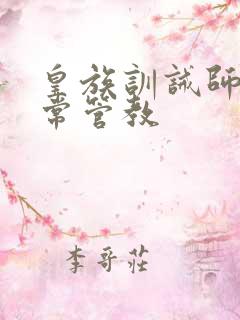 皇族訓誡師
常管教
李哥莊